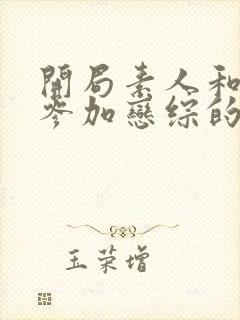 開局素人和
參加戀綜的
玉荣增